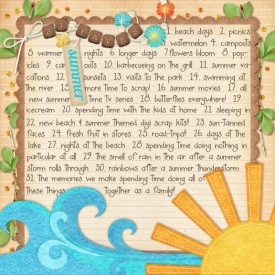 summer
1. beach days 2. picnics
3. watermelon 4. campouts
5. warmer nights 6. longer days 7. flowers bloom 8. pop-
icles 9. 10. barbecueing on the grill 11. summer va-
cations 12. sunsets 13. visits to the park 14. swimming at
the river 15. more time to scrap! 16. summer movies 17. all
new summer time tv series 18. butterflies everywhere! 19.
icecream 20. spending time with the kids at home 21. sleeping in
22. new beach & summer themed digi scrap kits! 23. sun-tanned
faces 24. fresh fruit in stores 25. road-trips! 26. days at the
lake 27. nights at the beach 28. spending time doing nothing in
particular at all 29. the smell of rain in the air after a summer
storm rolls through 30. rainbows after a summer thunderstorm
31. The memories we make spending time doing all of
these things Together as a family!